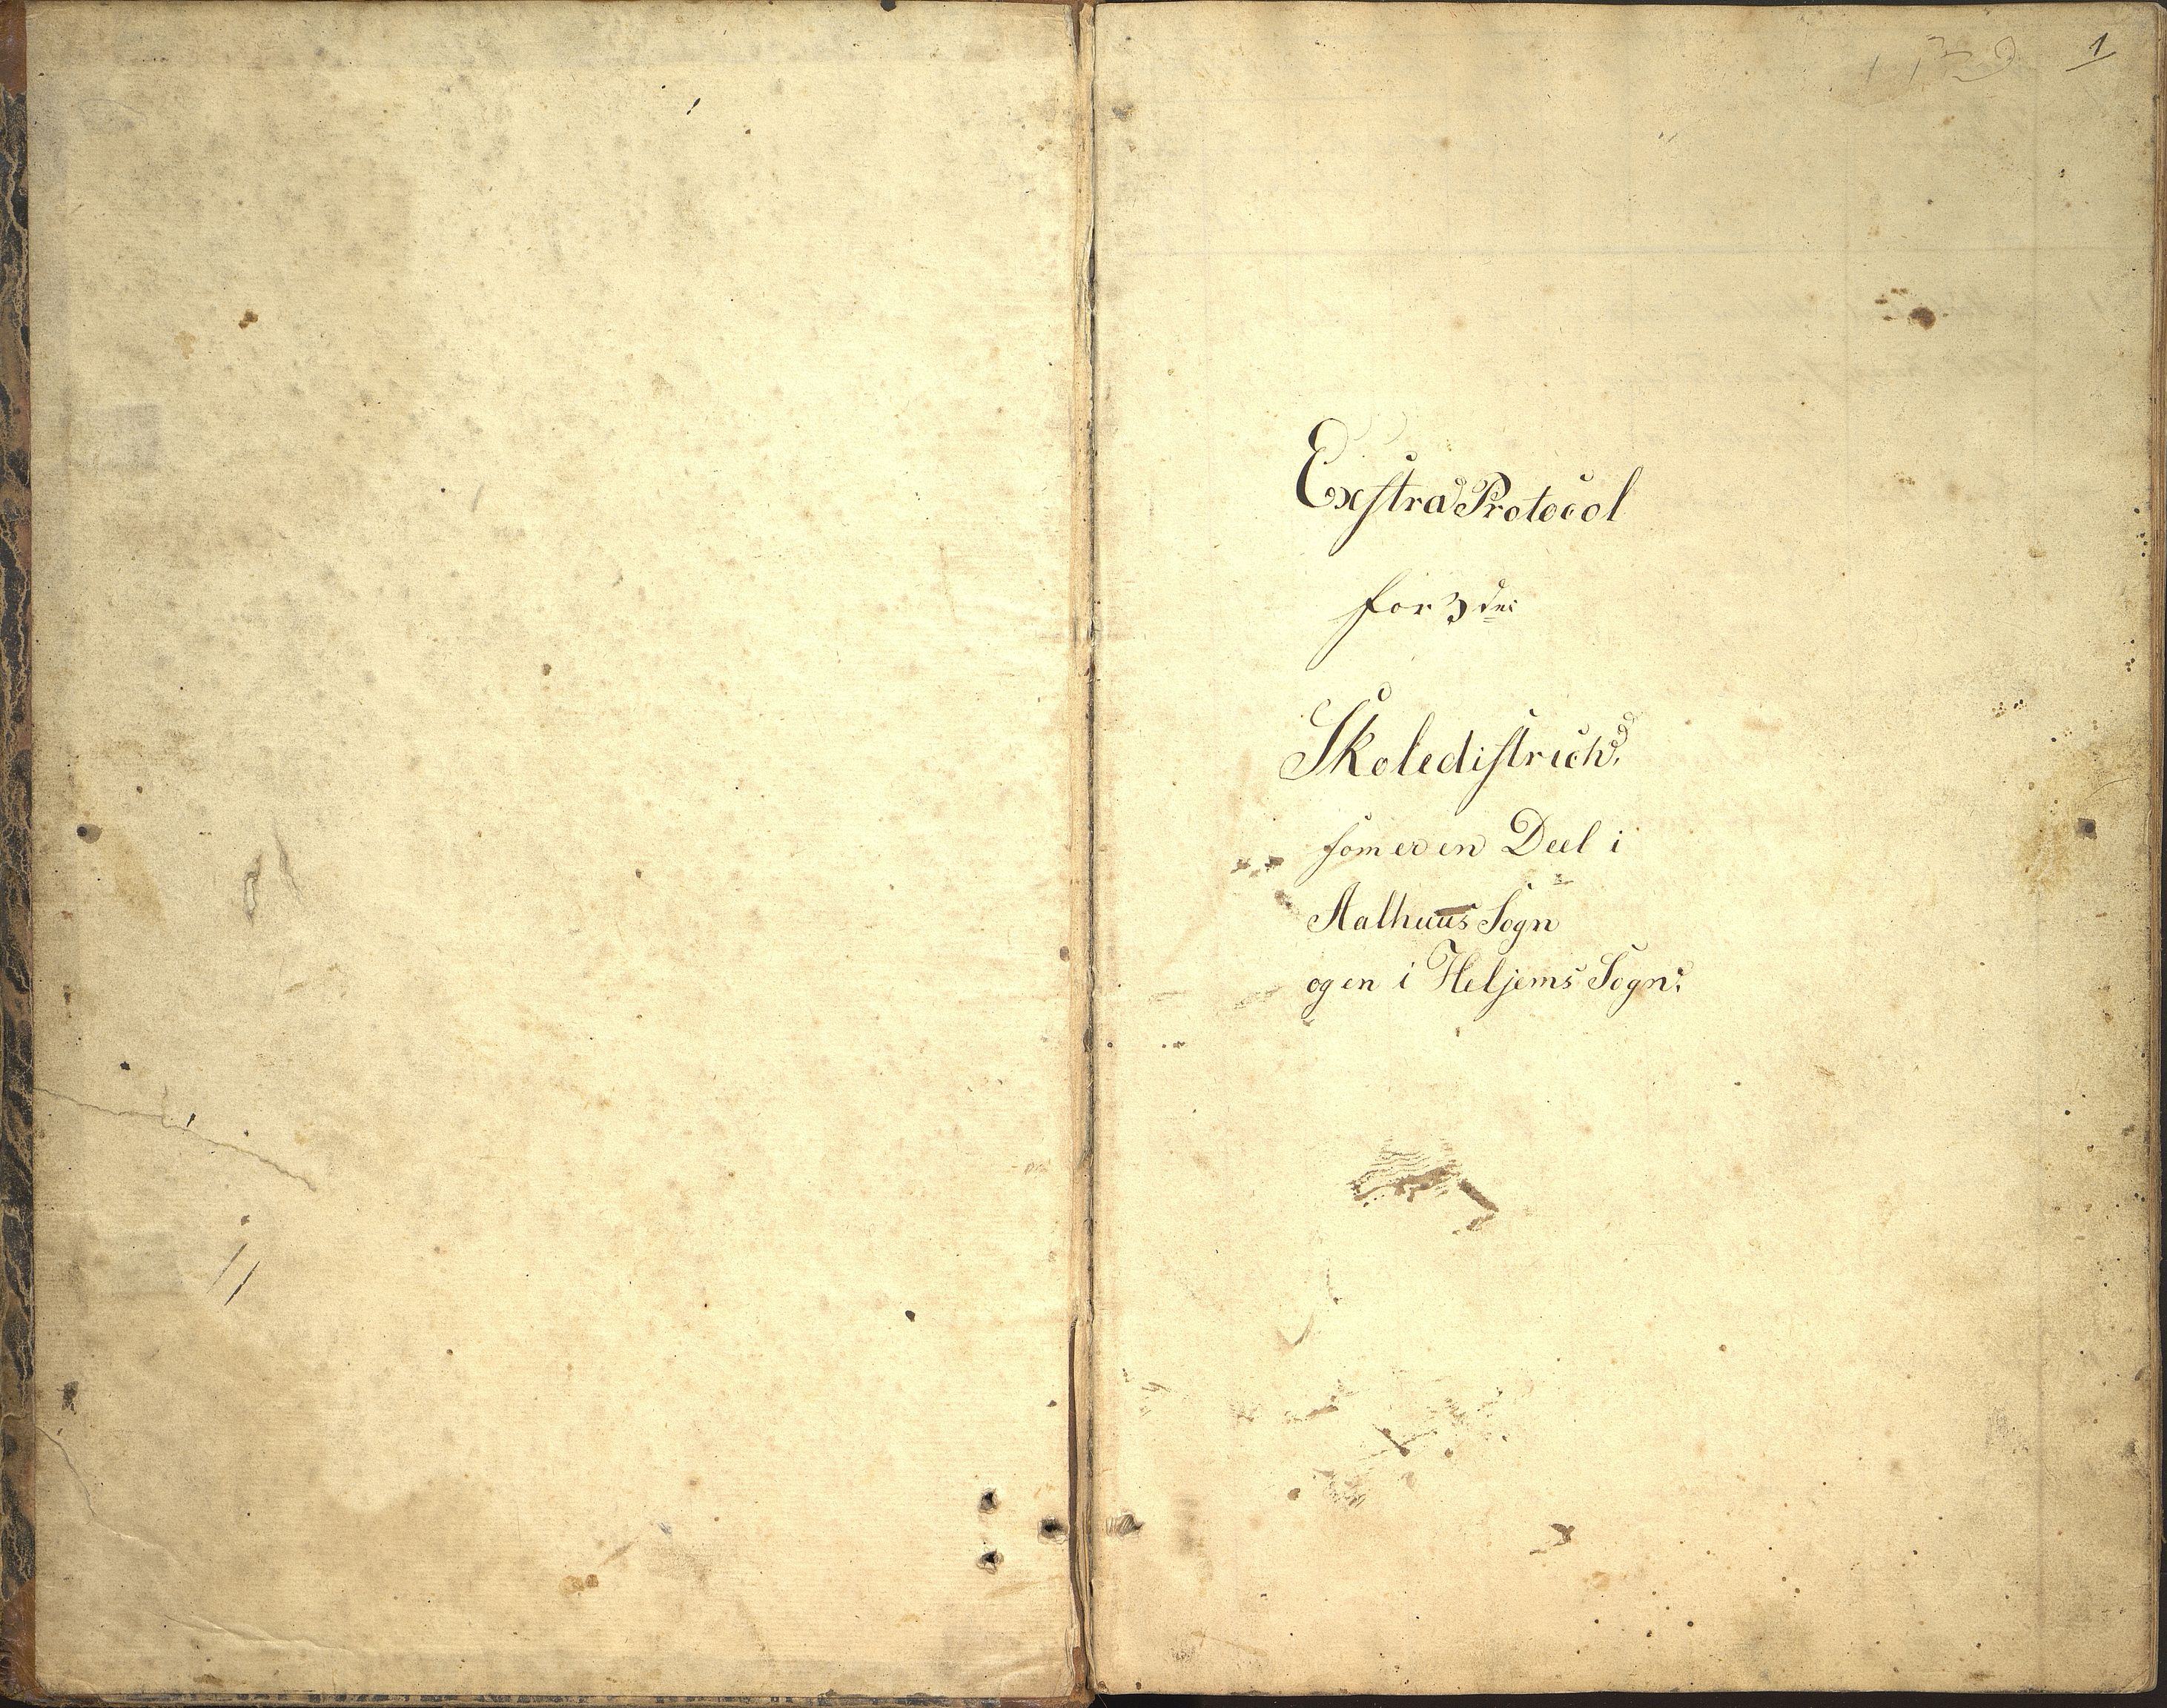 1
Exstra Protocol
for 3die
Skoledistrich,
som er en Deel i
Aalhuus Sogn
og en i Heljems Sogn: